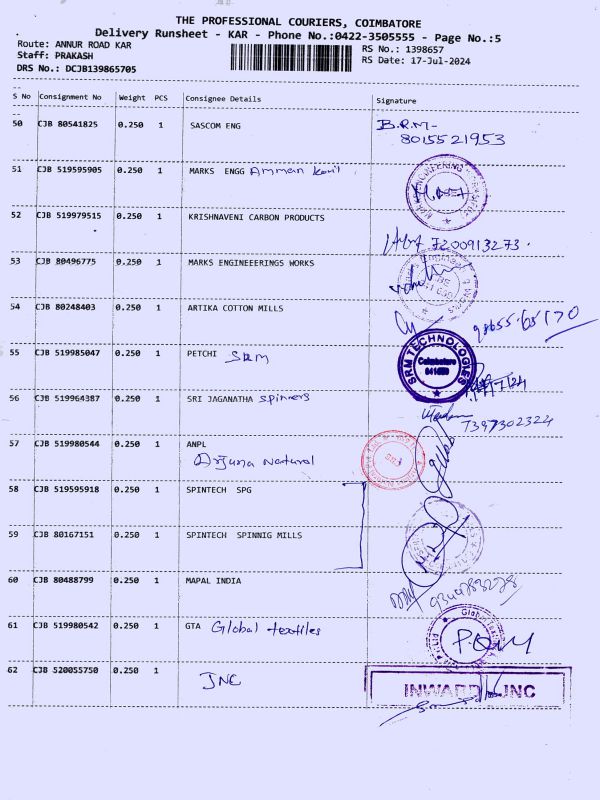 THE PROFESSIONAL COURIERS, COIMBATORE
Delivery Runsheet - KAR - Phone No.:0422-3505555 - Page No.:5
Route: ANNUR ROAD KAR
RS No.: 1398657
Staff: PRAKASH
RS Date: 17-Jul-2024
DRS No.: DCJB139865705
S No Consignment No Weight PCS Consignee Details Signature
50 CJB 80541825 0.250 1 SASCOM ENG B.R.M- 8015521953
51 CJB 519595905 0.250 1 MARKS ENGG Amman Kovil
52 CJB 519979515 0.250 1 KRISHNAVENI CARBON PRODUCTS 7200913273.
53 CJB 80496775 0.250 1 MARKS ENGINEEERINGS WORKS
54 CJB 80248403 0.250 1 ARTIKA COTTON MILLS
55 CJB 519985047 0.250 1 PETCHI SRM SRM TECHNOLOGIES Coimbatore
56 CJB 519964387 0.250 1 SRI JAGANATHA spinners 7397302324
57 CJB 519980544 0.250 1 ANPL
Arjuna Natural
58 CJB 519595918 0.250 1 SPINTECH SPG
59 CJB 80167151 0.250 1 SPINTECH SPINNIG MILLS
60 CJB 80488799 0.250 1 MAPAL INDIA
61 CJB 519980542 0.250 1 GTA Global textiles
62 CJB 520055750 0.250 1 JNC